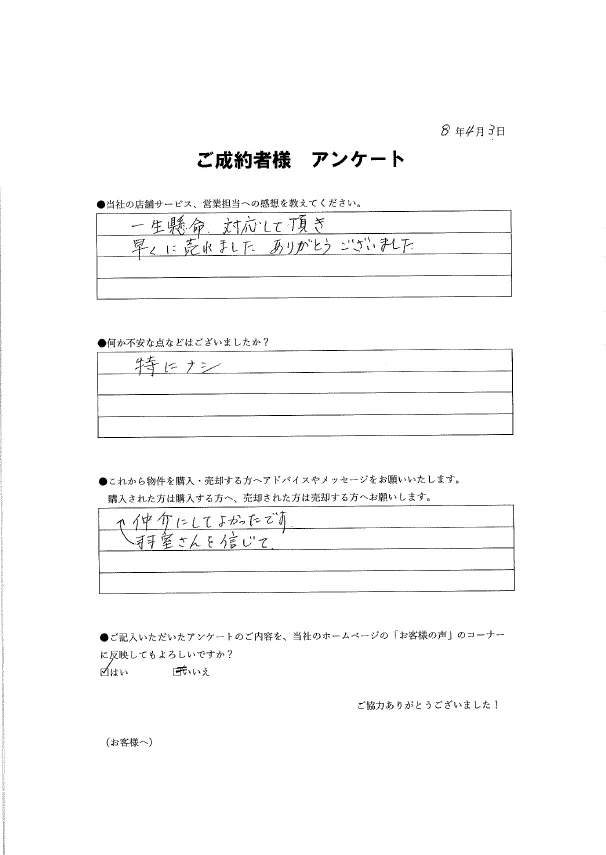 8年4月3日
ご成約者様 アンケート
●当社の店舗サービス、営業担当への感想を教えてください。
一生懸命 対応して頂き
早くに売れました ありがとうございました
●何か不安な点などはございましたか？
特にナシ
●これから物件を購入・売却する方へアドバイスやメッセージをお願いいたします。
購入された方は購入する方へ、売却された方は売却する方へお願いします。
仲介にしてよかったです
室さんを信じて
●ご記入いただいたアンケートのご内容を、当社のホームページの「お客様の声」のコーナー
に反映してもよろしいですか？
☑はい □いいえ
ご協力ありがとうございました！
（お客様へ）